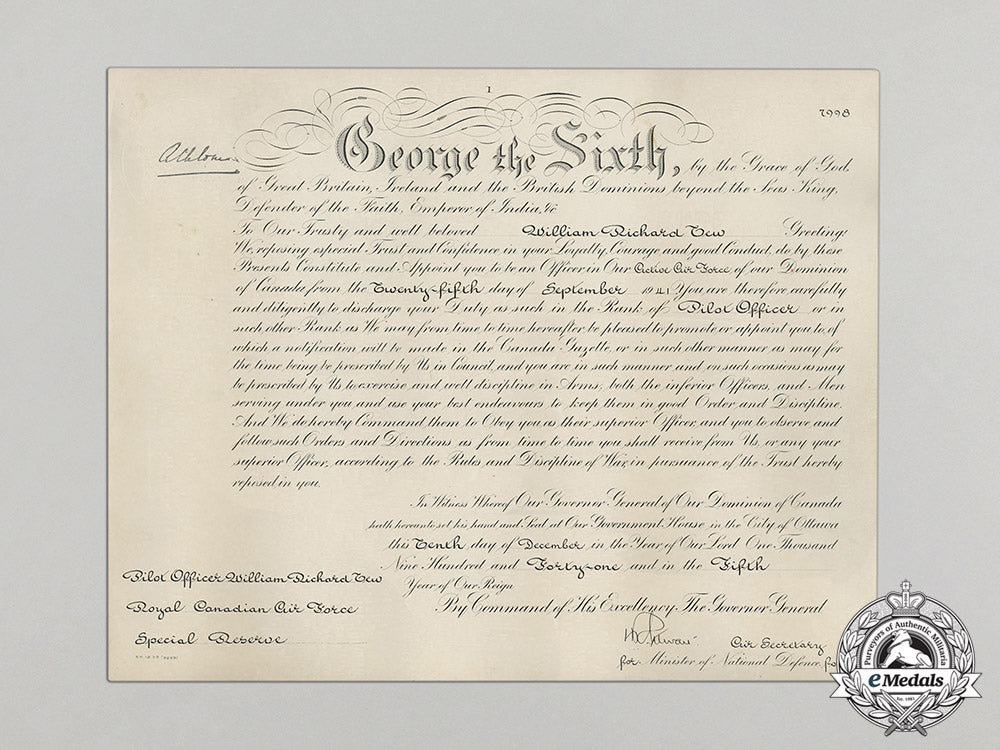 I
7998
Athlone
George the Sixth, by the Grace of God,
of Great Britain, Ireland and the British Dominions beyond the Seas King,
Defender of the Faith, Emperor of India, &c
To Our Trusty and well beloved William Richard Tew Greeting:
We, reposing especial Trust and Confidence in your Loyalty, Courage and good Conduct, do by these
Presents Constitute and Appoint you to be an Officer in Our Active Air Force of our Dominion
of Canada from the Twenty-fifth day of September 1941 You are therefore carefully
and diligently to discharge your Duty as such in the Rank of Pilot Officer or in
such other Rank as We may from time to time hereafter be pleased to promote or appoint you to, of
which a notification will be made in the Canada Gazette, or in such other manner as may for
the time being be prescribed by Us in Council, and you are in such manner and on such occasions as may
be prescribed by Us to exercise and well discipline in Arms, both the inferior Officers and Men
serving under you and use your best endeavours to keep them in good Order and Discipline,
And We do hereby Command them to Obey you as their superior Officer, and you to observe and
follow such Orders and Directions as from time to time you shall receive from Us, or any your
superior Officer, according to the Rules and Discipline of War, in pursuance of the Trust hereby
reposed in you.
In Witness Whereof Our Governor General of Our Dominion of Canada
hath hereunto set his hand and Seal at Our Government House in the City of Ottawa
this Tenth day of December in the Year of Our Lord One Thousand
Nine Hundred and Forty-one and in the Fifth
Year of Our Reign
By Command of His Excellency The Governor General
Pilot Officer William Richard Tew
Royal Canadian Air Force
Special Reserve
Air Secretary
for Minister of National Defence for
Purveyors of Authentic Militaria
eMedals
Est. 1985